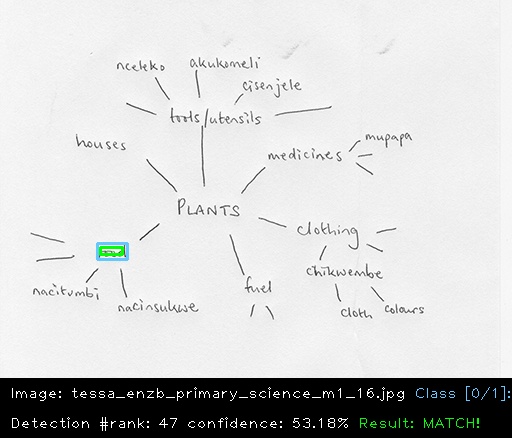 nceleko
akukomeli
cisenjele
tools/utensils
houses
medicines
mupapa
PLANTS
clothing
chikwembe
cloth
colours
fuel
nacitumbi
nacinsukwe
Image: tessa_enzb_primary_science_m1_16.jpg Class [0/1]:
Detection #rank: 47 confidence: 53.18% Result: MATCH!